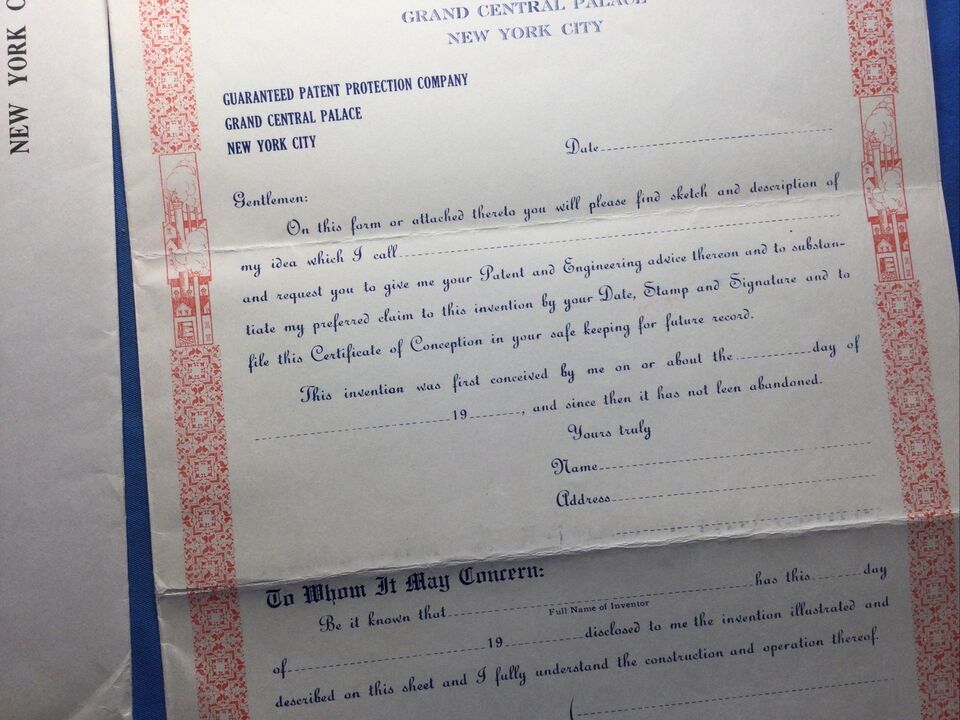 NEW YORK C
GRAND CENTRAL PALACE
NEW YORK CITY
GUARANTEED PATENT PROTECTION COMPANY
GRAND CENTRAL PALACE
NEW YORK CITY
Date
Gentlemen:
On this form or attached thereto you will please find sketch and description of
my idea which I call
and request you to give me your Patent and Engineering advice thereon and to substan-
tiate my preferred claim to this invention by your Date, Stamp and Signature and to
file this Certificate of Conception in your safe keeping for future record.
This invention was first conceived by me on or about the day of
19 , and since then it has not leen abandoned.
Yours truly
Name
Address
To Whom It May Concern:
Be it known that has this day
Full Name of Inventor
of 19 disclosed to me the invention illustrated and
described on this sheet and I fully understand the construction and operation thereof.
(